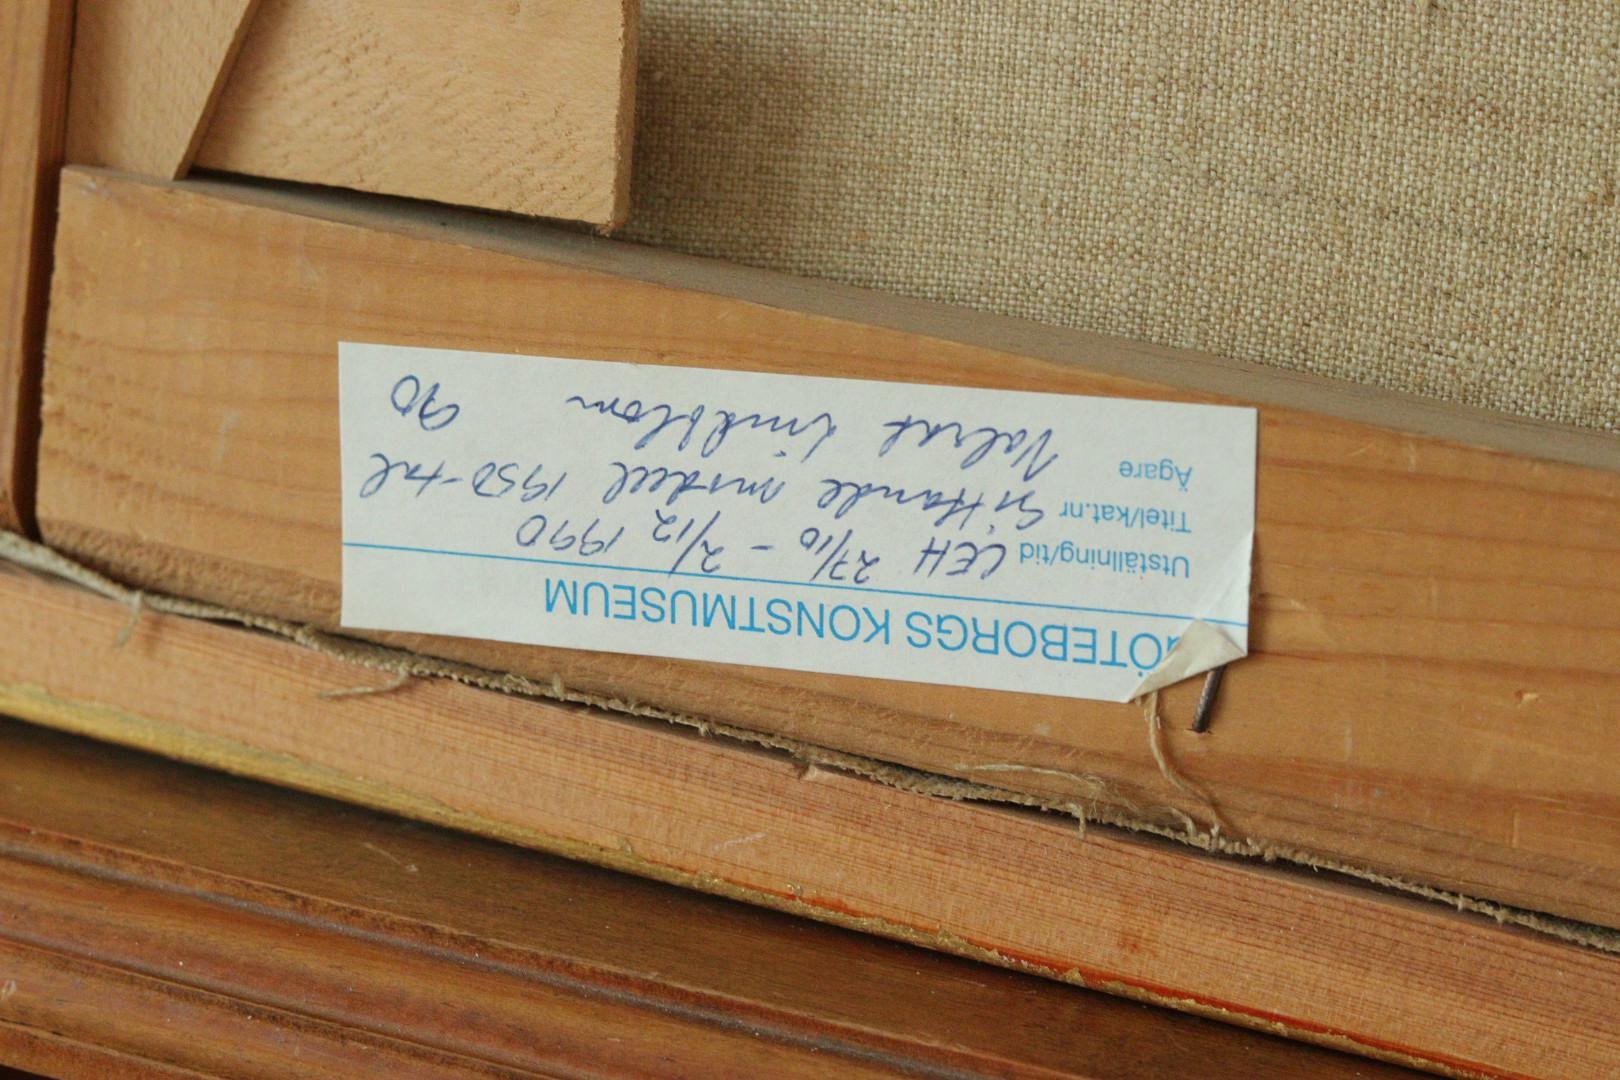 GÖTEBORGS KONSTMUSEUM
Utställning/tid CEH 27/10 - 2/12 1990
Titel/kat.nr Sittande modell 1950-tal
Ägare Valret Lindblom 90